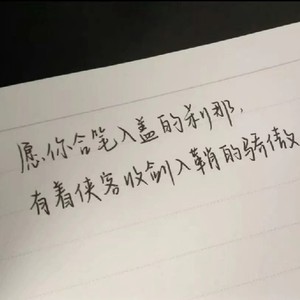 愿你合笔入盖的刹那，
有着侠客收剑入鞘的骄傲